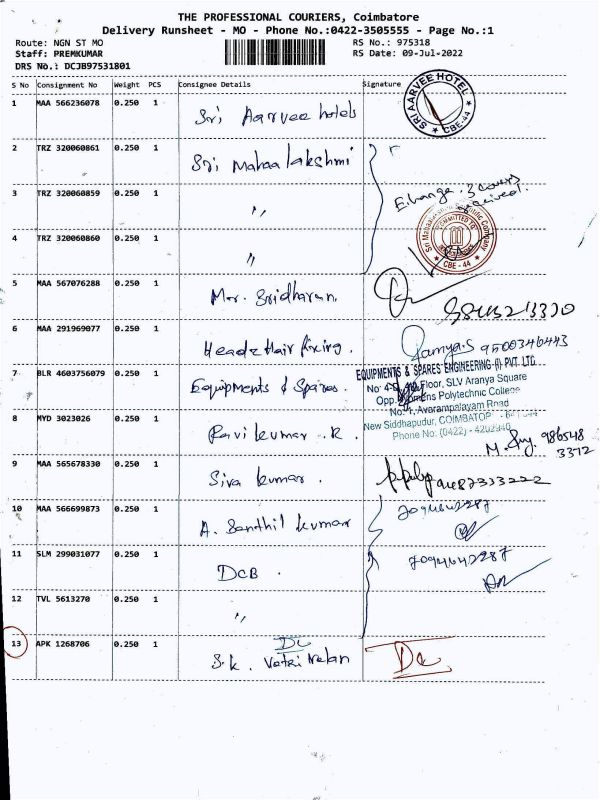 THE PROFESSIONAL COURIERS, Coimbatore
Delivery Runsheet - MO - Phone No.:0422-3505555 - Page No.:1
Route: NGN ST MO RS No.: 975318
Staff: PREMKUMAR RS Date: 09-Jul-2022
DRS No.: DCJB97531801
S No Consignment No Weight PCS Consignee Details Signature
1 MAA 566236078 0.250 1 Sri Aarvee hotels
SRI AARVEE HOTEL
CBE-44
2 TRZ 320060861 0.250 1 Sri Mahaa lakshmi
3 TRZ 320060859 0.250 1 "
3 covers
received.
4 TRZ 320060860 0.250 1 "
COMMITTED TO
CBE - 44
5 MAA 567076288 0.250 1 Mr. Sridharan.
6 MAA 291969077 0.250 1 Head2Hair fixing.
Ramya.S 9500346443
7 BLR 4603756079 0.250 1 Equipments & Spares.
EQUIPMENTS & SPARES ENGINEERING (I) PVT. LTD.
Floor, SLV Aranya Square
Opp. Womens Polytechnic College
No. 1, Avarampalayam Road
New Siddhapudur, COIMBATORE
Phone No: (0422) - 4202940
8 MYD 3023026 0.250 1 Ravi kumar .R.
9 MAA 565678330 0.250 1 Siva kumar .
10 MAA 566699873 0.250 1 A. Senthil kumar
7094642287
11 SLM 299031077 0.250 1 DCB .
7094642287
12 TVL 5613270 0.250 1 "
13 APK 1268706 0.250 1 S.K. Vetri Velan
DL
DL